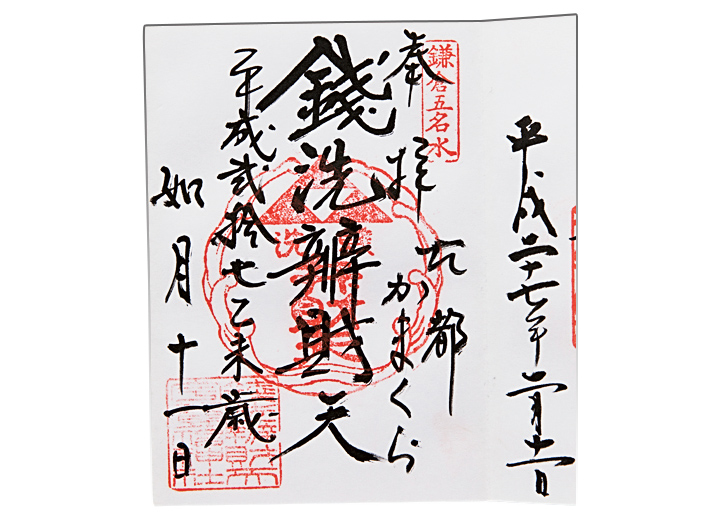 平成二十七年二月十一日
鎌倉五名水
奉拝
古都
かまくら
銭洗辨財天
平成弐拾七乙未歳
如月十一日